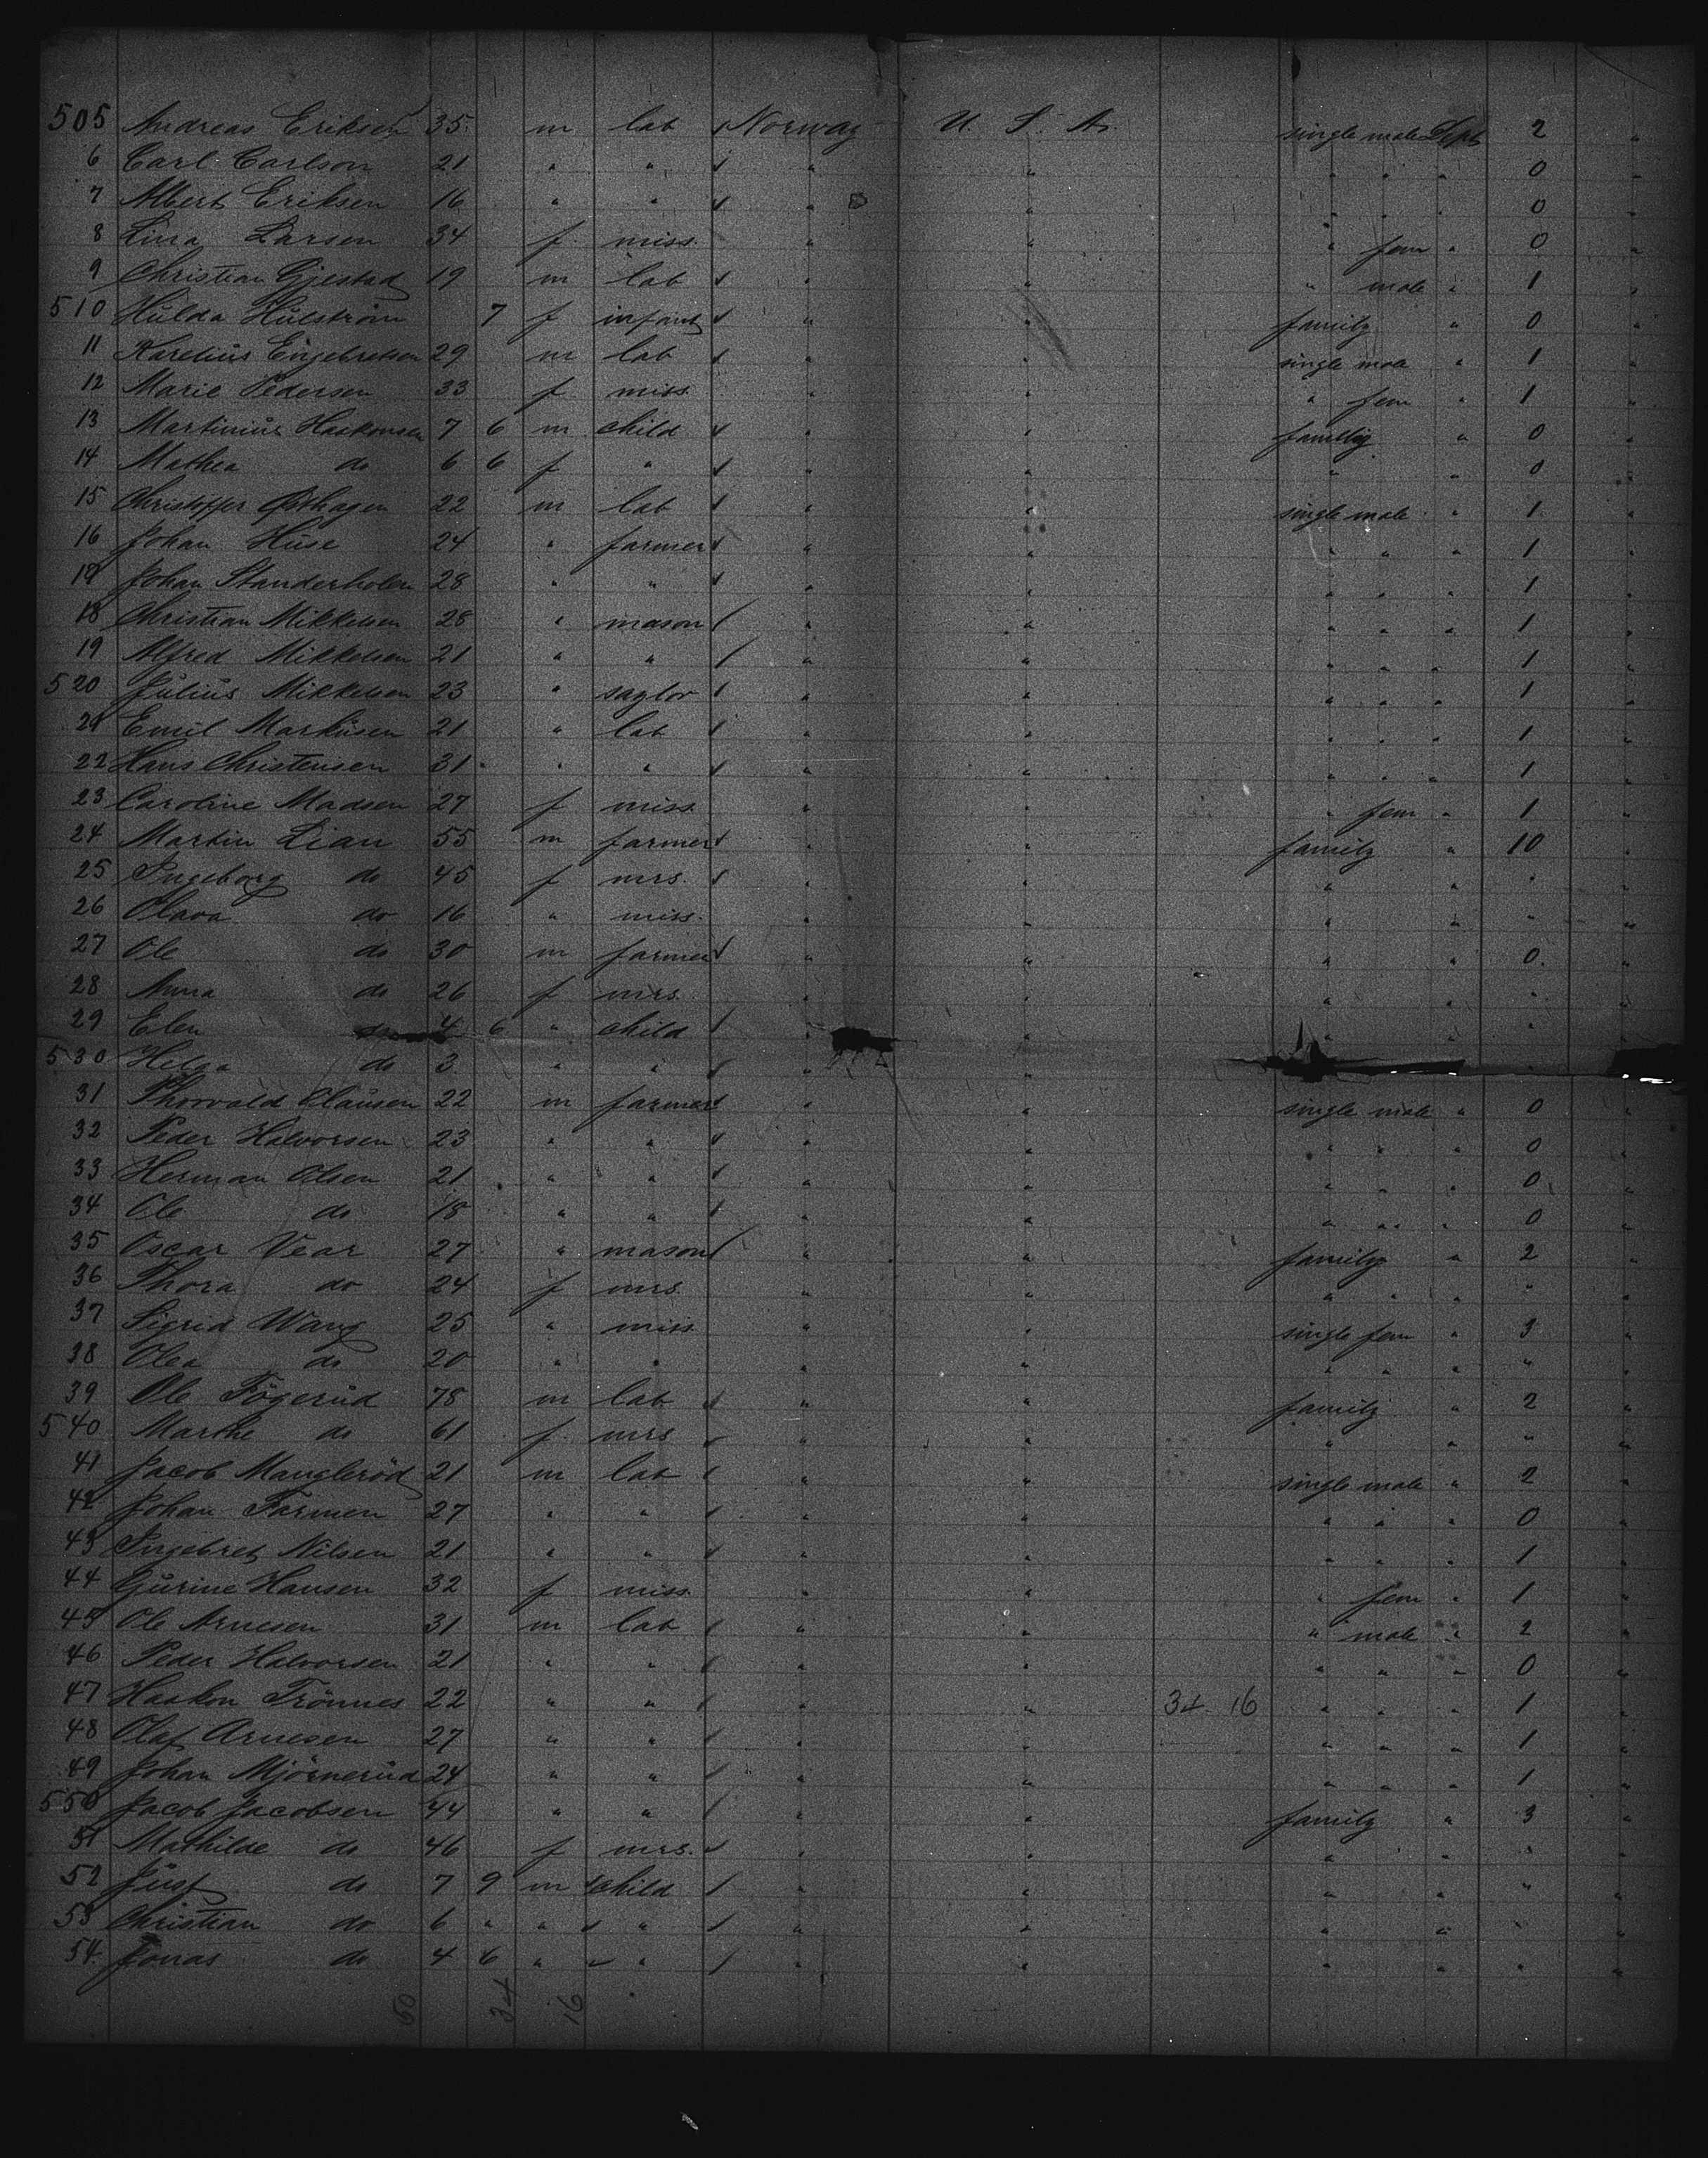 505 Andreas Eriksen 35 m lab Norway U. S. A. single male Sept 2 "
6 Carl Carlson 21 " " " " " " " 0 "
7 Albert Eriksen 16 " " " " " " " 0 "
8 Lina Larsen 34 f miss " " " fem " 0 "
9 Christian Gjestad 19 m lab " " " male " 1 "
510 Hulda Hulström 7 f infant " " family " 0 "
11 Karelius Engebretsen 29 m lab " " single male " 1 "
12 Marie Pedersen 33 f miss " " " fem " 1 "
13 Martinius Haakonsen 7 6 m child " " family " 0 "
14 Mathea do 6 6 f " " " " " 0 "
15 Christoffer Østhagen 22 m lab " " single male " 1 "
16 Johan Huse 24 " farmer " " " " " 1 "
17 Johan Standerholen 28 " " " " " " " 1 "
18 Christian Mikkelsen 28 " mason " " " " " 1 "
19 Alfred Mikkelsen 21 " " " " " " " 1 "
520 Julius Mikkelsen 23 " saylor " " " " " 1 "
21 Emil Markusen 21 " lab " " " " " 1 "
22 Hans Christensen 31 " " " " " " " 1 "
23 Caroline Madsen 27 f miss " " " fem " 1 "
24 Martin Lian 55 m farmer " " family " 10 "
25 Ingeborg do 45 f mrs. " " " " " "
26 Olava do 16 " miss. " " " " " "
27 Ole do 30 m farmer " " " " 0 "
28 Anna do 26 f mrs " " " " " "
29 Elen do 4 6 " child " " " " "
530 Helga do 3 " " " " "
31 Thorvald Clausen 22 m farmer " " single male " 0 "
32 Peder Halvorsen 23 " " " " " " " 0 "
33 Herman Olsen 21 " " " " " " " 0 "
34 Ole do 18 " " " " " " " 0 "
35 Oscar Vear 27 " mason " " family " 2 "
36 Thora do 24 f mrs " " " " " " "
37 Sigrid Wang 25 " miss " " single fem " 3 "
38 Olea do 20 " " " " " " " " "
39 Ole Fögerud 78 m lab " " family " 2 "
540 Marthe do 61 f mrs " " " " " "
41 Jacob Mangleröd 21 m lab " " single male " 2 "
42 Johan Farmen 27 " " " " " " " 0 "
43 Ingebret Nilsen 21 " " " " " " " 1 "
44 Gurine Hansen 32 f miss " " " fem " 1 "
45 Ole Arnesen 31 m lab " " " male " 2 "
46 Peder Halvorsen 21 " " " " " " " 0 "
47 Haakon Trönnes 22 " " " " 34 16 " " " 1 "
48 Olaf Arnesen 27 " " " " " " " 1 "
49 Johan Mjörnerud 24 " " " " " " " 1 "
550 Jacob Jacobsen 44 " " " " family " 3 "
51 Mathilde do 46 f mrs. " " " " " "
52 Just do 7 9 m child " " " " " "
53 Christian do 6 " " " " " " " " "
54 Jonas do 4 6 " " " " " " " "
50 34 16